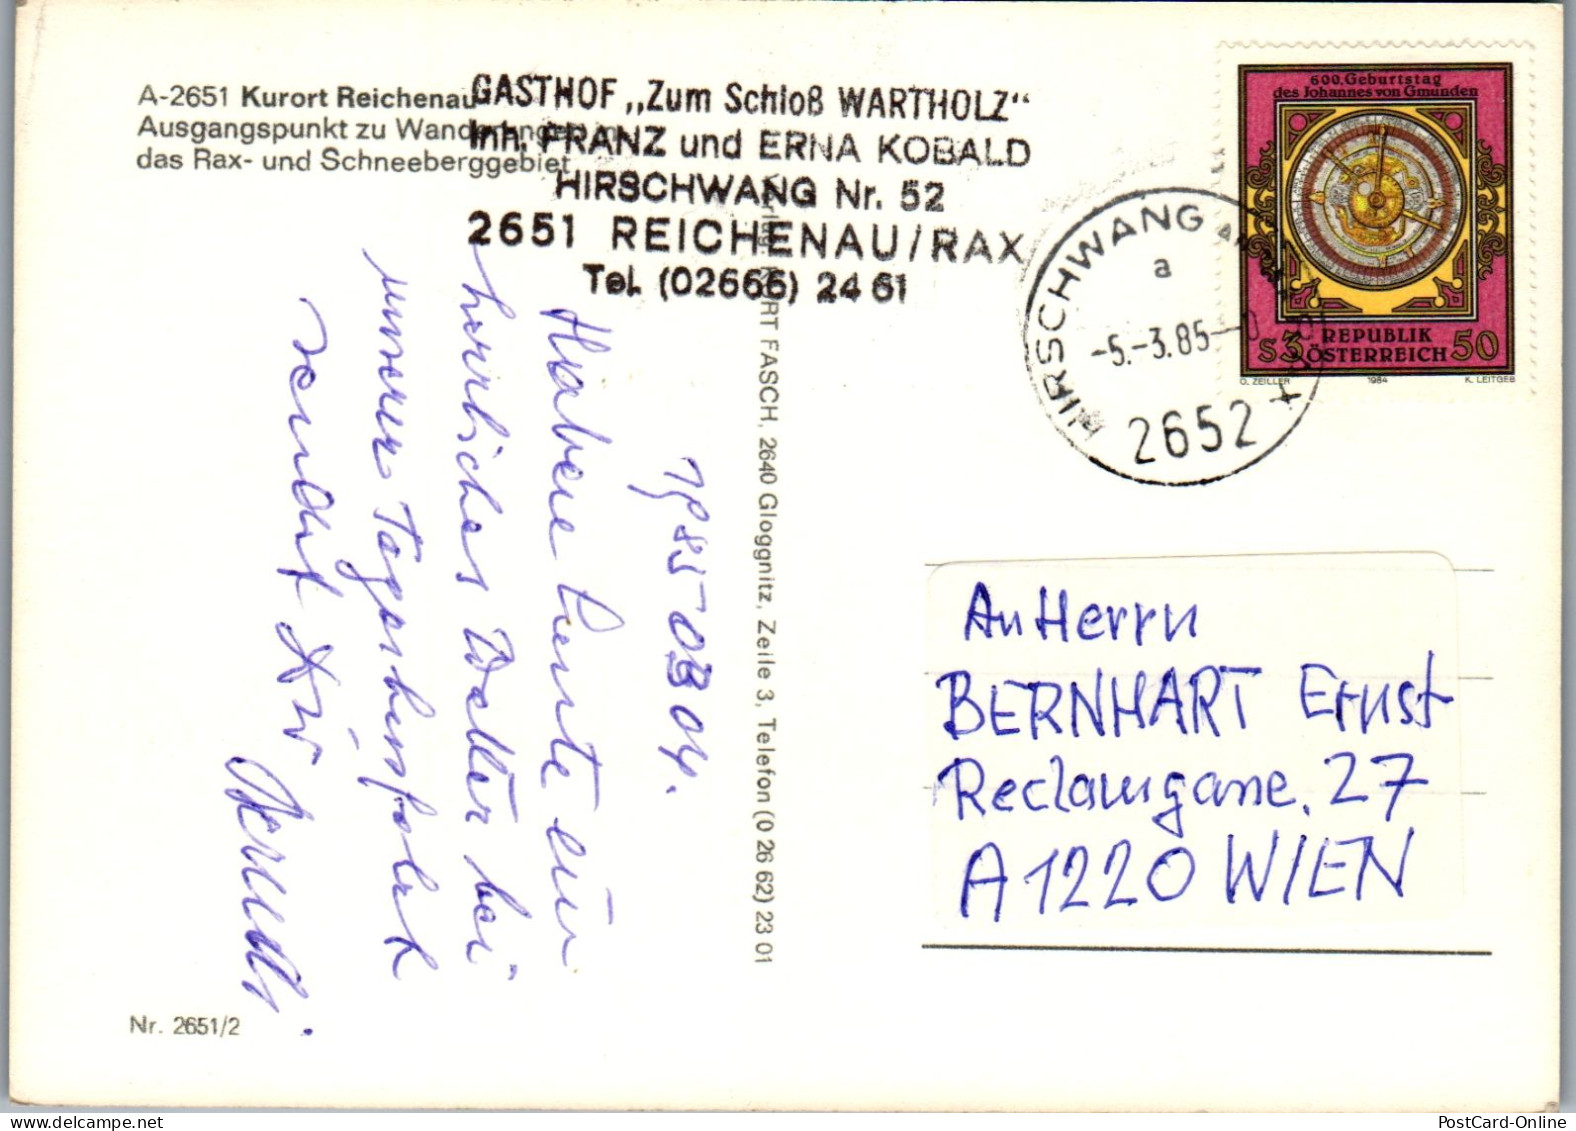 A-2651 Kurort Reichenau
Ausgangspunkt zu Wanderungen in
das Rax- und Schneeberggebiet
GASTHOF „Zum Schloß WARTHOLZ"
Inh. FRANZ und ERNA KOBALD
HIRSCHWANG Nr. 52
2651 REICHENAU/RAX
Tel. (02666) 24 61
600. Geburtstag
des Johannes von Gmunden
REPUBLIK
S 3 ÖSTERREICH 50
O. ZEILLER 1984 K. LEITGEB
HIRSCHWANG AN DER RAX
a
-5.-3.85-
2652
1985-03 04.
Haben heute ein
herrliches Wetter bei
unserer Tagesskifahrt
KURT FASCH, 2640 Gloggnitz, Zeile 3, Telefon (0 26 62) 23 01
An Herrn
BERNHART Ernst
Reclamgasse. 27
A 1220 WIEN
Nr. 2651/2
PostCard-Online